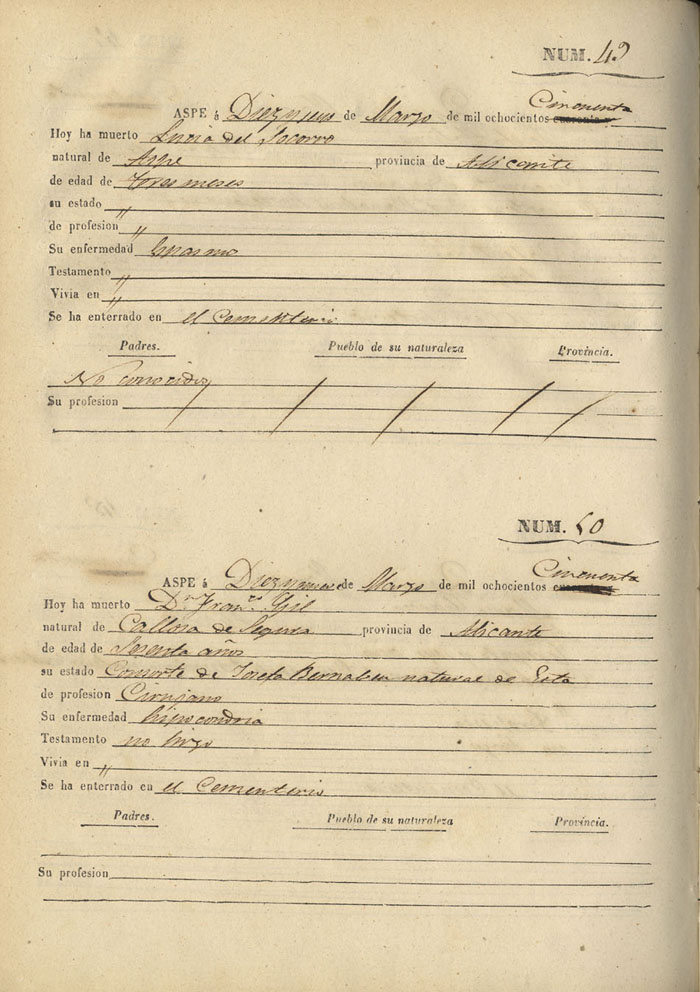 NUM. 49
Cincuenta
ASPE á Diez y nueve de Marzo de mil ochocientos
Hoy ha muerto Lucia del Socorro
natural de Aspe provincia de Alicante
de edad de tres meses
su estado "
de profesion "
Su enfermedad
Testamento "
Vivia en "
Se ha enterrado en el Cementerio
Padres. Pueblo de su naturaleza Provincia.
No conocidos
Su profesion
NUM. 50
Cincuenta
ASPE á Diez y nueve de Marzo de mil ochocientos
Hoy ha muerto Dn. Franco. Gil
natural de Callosa de Segura provincia de Alicante
de edad de Sesenta años
su estado Consorte de Josefa Bernabeu natural de Esta
de profesion Cirujano
Su enfermedad hipocondria
Testamento no hizo
Vivia en "
Se ha enterrado en el Cementerio
Padres. Pueblo de su naturaleza Provincia.
Su profesion